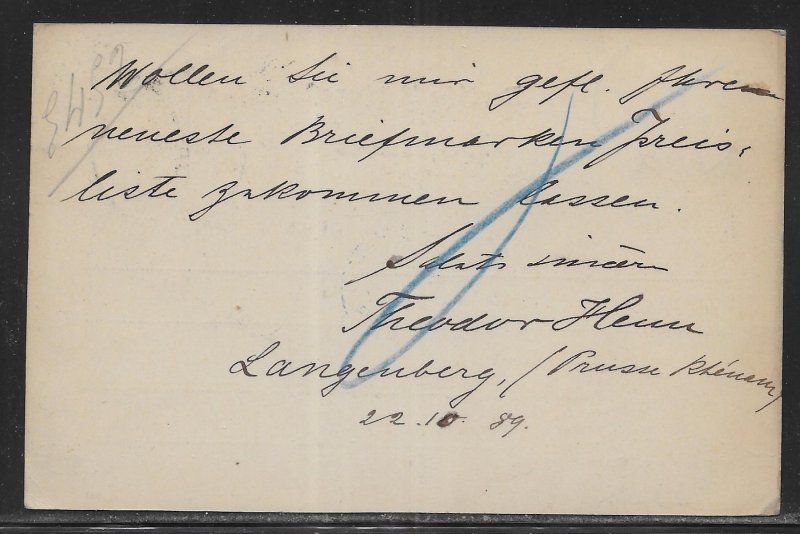 Wollen Sie mir gefl. Ihren
neueste Briefmarken Preis-
liste zukommen lassen.
Theodor Henn
Langenberg, (Prusse Rhénane)
22.10.89.